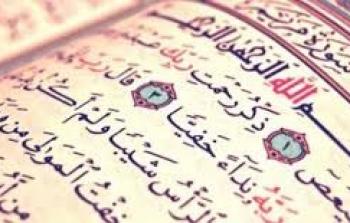 سُورَةُ مَرْيَمَ
ـمِ اللَّهِ الرَّحْمَٰنِ الرَّحِيمِ
ـعص ١ ذِكْرُ رَحْمَتِ رَبِّكَ عَبْدَهُ
رَبَّهُ نِدَآءً خَفِيًّا ٣ قَالَ رَبِّ
الرَّأْسُ شَيْبًا وَلَمْ أَكُنْ
خِفْتُ الْمَوَالِيَ مِن وَ
مِنْ